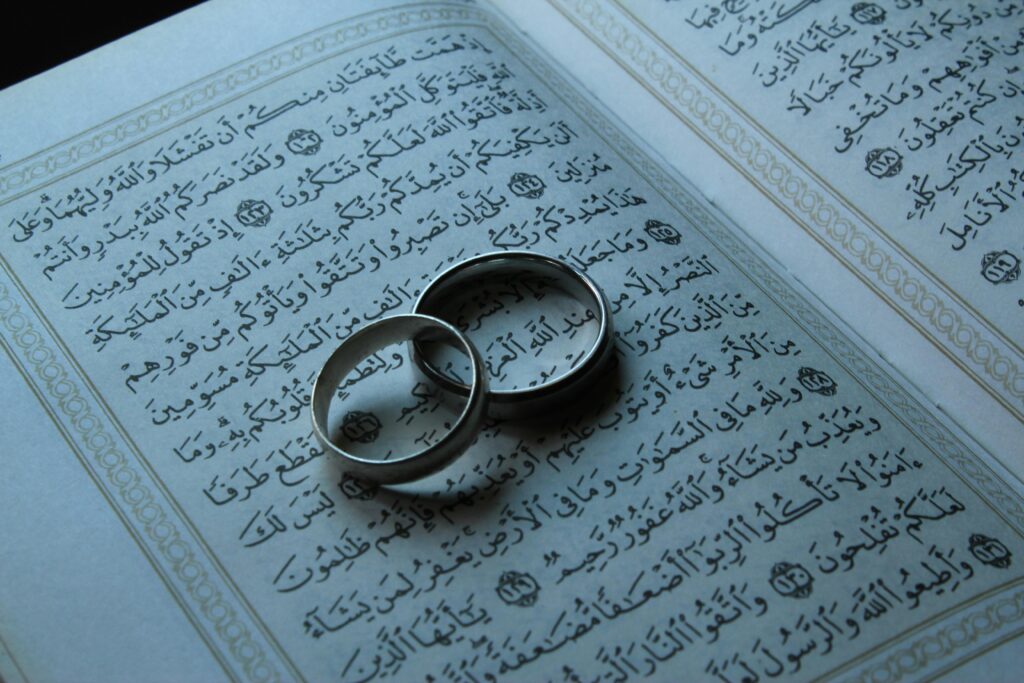 فِيهَا
وَمَا
يَٰٓأَيُّهَا ٱلَّذِينَ
دُونِكُمْ لَا يَأْلُونَكُمْ خَبَالًا
أَفْوَٰهِهِمْ وَمَا تُخْفِى
كُنتُمْ تَعْقِلُونَ ١١٨
بِٱلْكِتَٰبِ كُلِّهِۦ
ٱلْأَنَامِلَ
١١٩
إِذْ هَمَّت طَّآئِفَتَانِ مِنكُمْ أَن تَفْشَلَا وَٱللَّهُ وَلِيُّهُمَا ۗ وَعَلَى
ٱللَّهِ فَلْيَتَوَكَّلِ ٱلْمُؤْمِنُونَ ١٢٢ وَلَقَدْ نَصَرَكُمُ ٱللَّهُ بِبَدْرٍ وَأَنتُمْ
أَذِلَّةٌ ۖ فَٱتَّقُوا۟ ٱللَّهَ لَعَلَّكُمْ تَشْكُرُونَ ١٢٣ إِذْ تَقُولُ لِلْمُؤْمِنِينَ
أَلَن يَكْفِيَكُمْ أَن يُمِدَّكُمْ رَبُّكُم بِثَلَٰثَةِ ءَالَٰفٍ مِّنَ ٱلْمَلَٰٓئِكَةِ
مُنزَلِينَ ١٢٤ بَلَىٰٓ ۚ إِن تَصْبِرُوا۟ وَتَتَّقُوا۟ وَيَأْتُوكُم مِّن فَوْرِهِمْ
هَٰذَا يُمْدِدْكُمْ رَبُّكُم ءَالَٰفٍ مِّنَ ٱلْمَلَٰٓئِكَةِ مُسَوِّمِينَ
١٢٥ وَمَا جَعَلَهُ إِلَّا بُشْرَىٰ وَلِتَطْمَئِنَّ قُلُوبُكُم بِهِۦ ۗ وَمَا
ٱلنَّصْرُ إِلَّا مِنْ عِندِ ٱللَّهِ ٱلْعَزِيزِ ٱلْحَكِيمِ ١٢٦ لِيَقْطَعَ طَرَفًا
مِّنَ ٱلَّذِينَ كَفَرُوٓا۟ لَيْسَ لَكَ
مِنَ ٱلْأَمْرِ شَىْءٌ أَوْ يَتُوبَ عَلَيْهِمْ أَوْ يُعَذِّبَهُمْ فَإِنَّهُمْ ظَٰلِمُونَ
١٢٨ وَلِلَّهِ مَا فِى ٱلسَّمَٰوَٰتِ وَمَا فِى ٱلْأَرْضِ ۚ يَغْفِرُ لِمَن يَشَآءُ
وَيُعَذِّبُ مَن يَشَآءُ ۚ وَٱللَّهُ غَفُورٌ رَّحِيمٌ ١٢٩ يَٰٓأَيُّهَا ٱلَّذِينَ
ءَامَنُوا۟ لَا تَأْكُلُوا۟ ٱلرِّبَوٰٓا۟ أَضْعَٰفًا مُّضَٰعَفَةً ۖ
لَعَلَّكُمْ تُفْلِحُونَ ١٣٠ وَٱتَّقُوا۟ ٱلنَّارَ
١٣١ وَأَطِيعُوا۟ ٱللَّهَ وَٱلرَّسُولَ